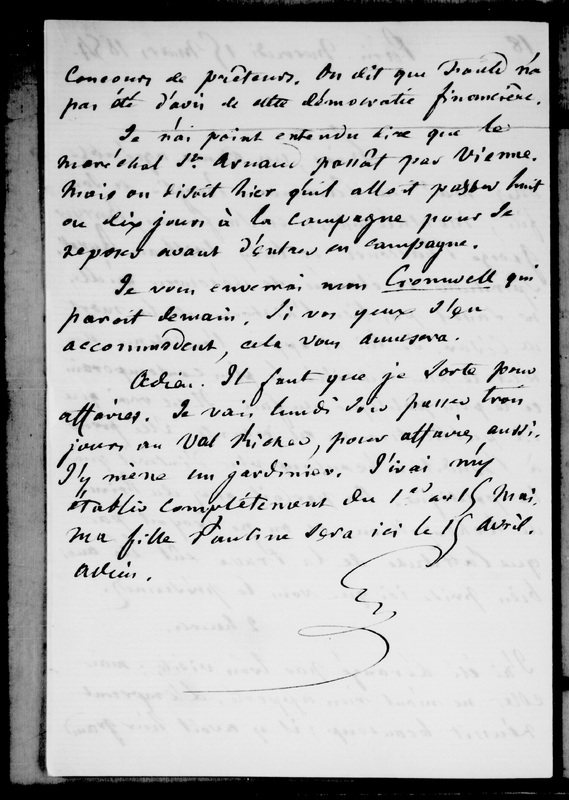 Concours de prêteurs. On dit que Fould n'a
pas été d'avis de cette démocratie financière.
Je n'ai point entendu dire que le
maréchal St. Arnaud passât par Vienne.
Mais on disoit hier qu'il alloit passer huit
ou dix jours à la campagne pour se
reposer avant d'entrer en campagne.
Je vous enverrai mon Cromwell qui
paroit demain. Si vos yeux s'en
accommodent, cela vous amusera.
Adieu. Il faut que je sorte pour
affaires. Je vais lundi soir passer trois
jours au Val Richer, pour affaires aussi.
J'y mène un jardinier. J'irai m'y
établir complètement du 1er au 15 Mai.
Ma fille Pauline sera ici le 15 Avril.
Adieu.